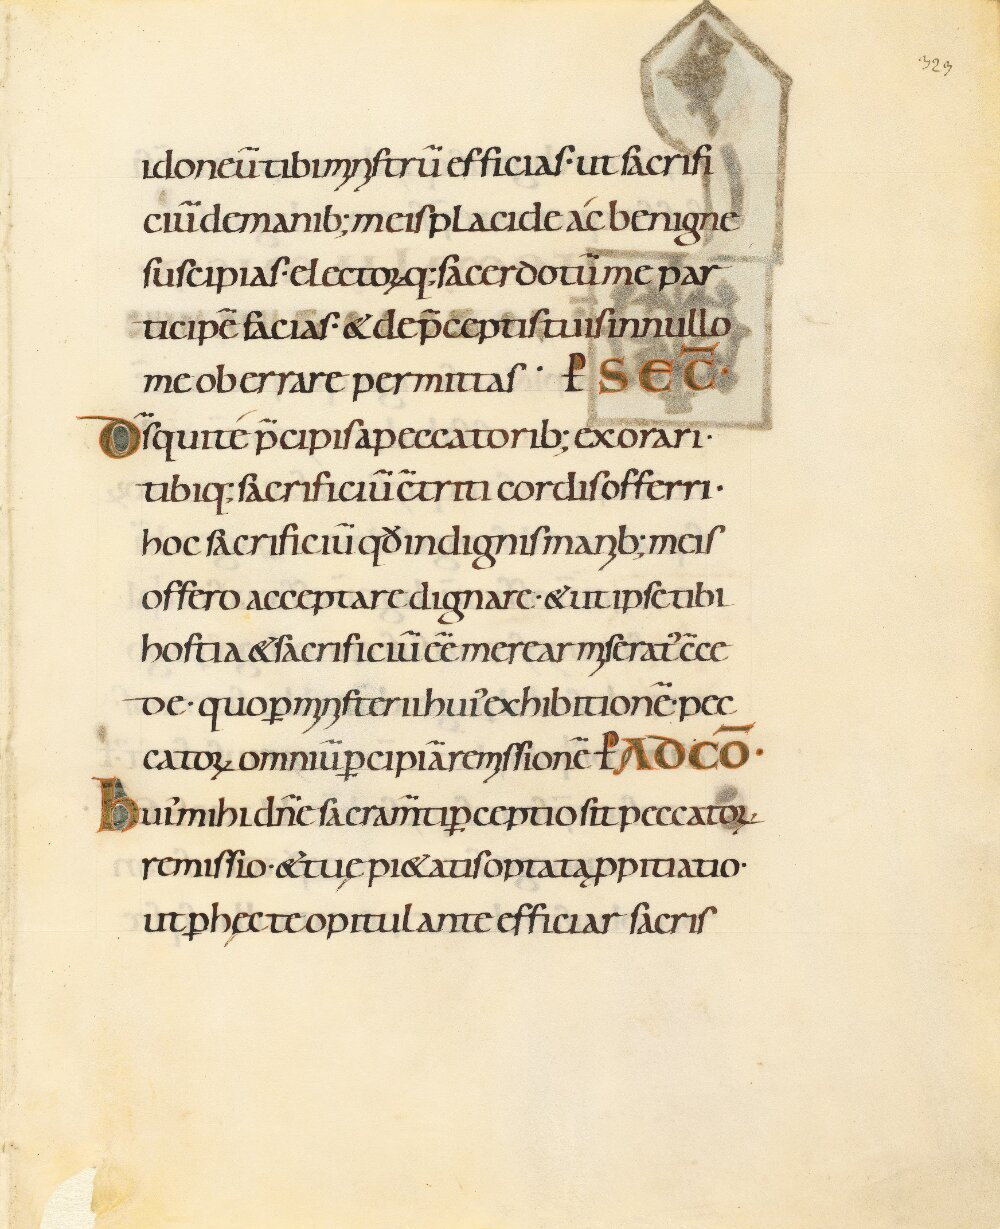 323
idoneū tibi mynstrū efficias· ut sacrifi
ciū de manib; meis placide ác benigne
suscipias· electoꝝq; sacerdotū me par
ticipē facias· & de p̄ceptis tuis in nullo
me oberrare permittas· ꝉ SEC̄·
D̄s qui té p̄cipis a peccatorib; exorari·
tibiq; sacrificiū c̄triti cordis offerri·
hoc sacrificiū qđ indignis manib; meis
offero acceptare dignare· & ut ipse tibi
hostia & sacrificiū eē merear miserat᾽ c̄ce
de· quo ꝑ mynsterii hui᾽ exhibitionē· pec
catoꝝ omniū ꝑcipiā remissionē ꝉ AD CŌ·
Hui᾽ mihi dn̄e sacram̄ti ꝑceptio sit peccatoꝝ
remissio· & tuę pi&atis optata ꝓpitiatio·
ut ꝑ hęc te opitulante efficiar sacris